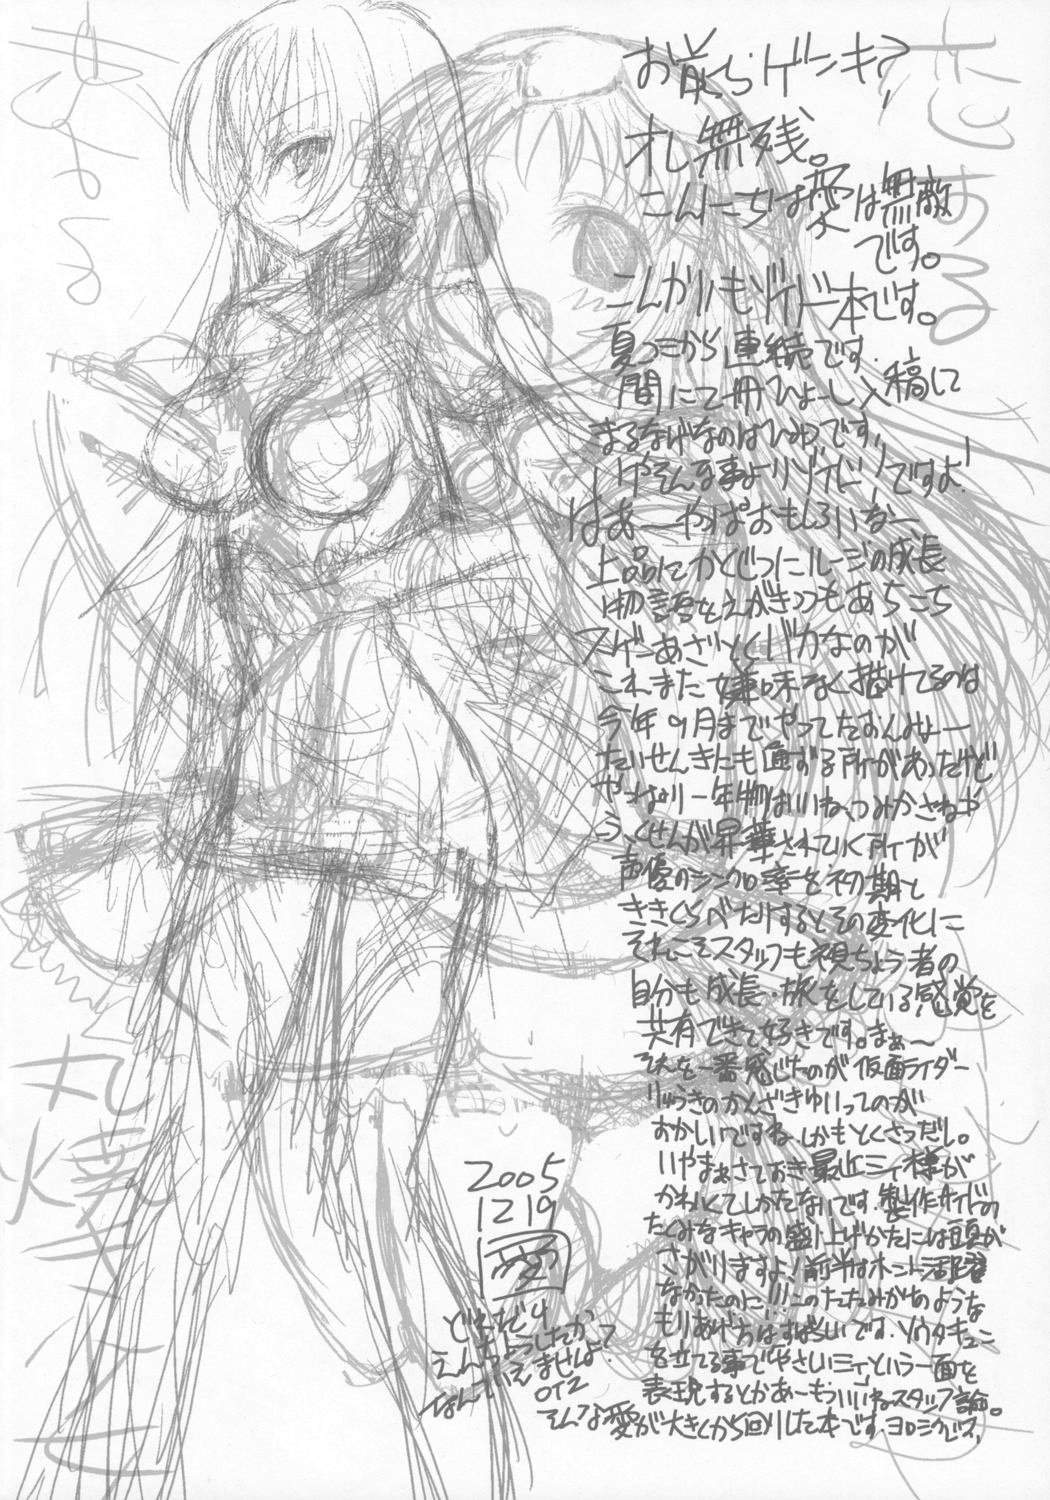 お前らゲンキ?
札無残。
こんにちは愛は無敵
です。
こんかいもゾイド本です。
夏コミから連続です。
間にて冊ひょーし入稿に
まるなげなのはひみつです!
いやそんな事よりゾイド!ですよ!
はあーやっぱおもしろいなー
上品にかくじつにルージの成長
物語をえがきつつもあちこち
スゲーあざとくバカなのが
これまた嫌味なく描けてるのは
今年9月までやってたおんみょー
たいせんきにも通ずる所があったけど
やっぱり一年物はいいね、つみかさねや
ふくせんが昇華されていく所が
声優のシンクロ率を初期と
ききくらべたりするとその変化に
それこそスタッフも視ちょう者の
自分も成長・旅をしている感覚を
共有できて好きです。まぁ〜
それを一番感じたのが仮面ライダー
りゅうきのかんざきゆいってのが
おかしいですね、しかもとくさつだし。
いやまぁさておき最近ミィ様が
かわいくてしかたないです。製作サイドの
たくみなキャラの盛り上げかたには頭が
さがりますよ!前半はホント活躍
なかったのに!!このたたみかけのような
もりあげ方はすばらしいです。ソウタキュン
を立てる事でやさしいミィという一面を
表現するとかあーもういいねスタッフ論。
そんな愛が大きくから回りした本です。ヨロシクデス。
2005
12 19
愛
どれだけ
えんちょうしてたか
なんていえませんよ?
OTZ
丸焼き